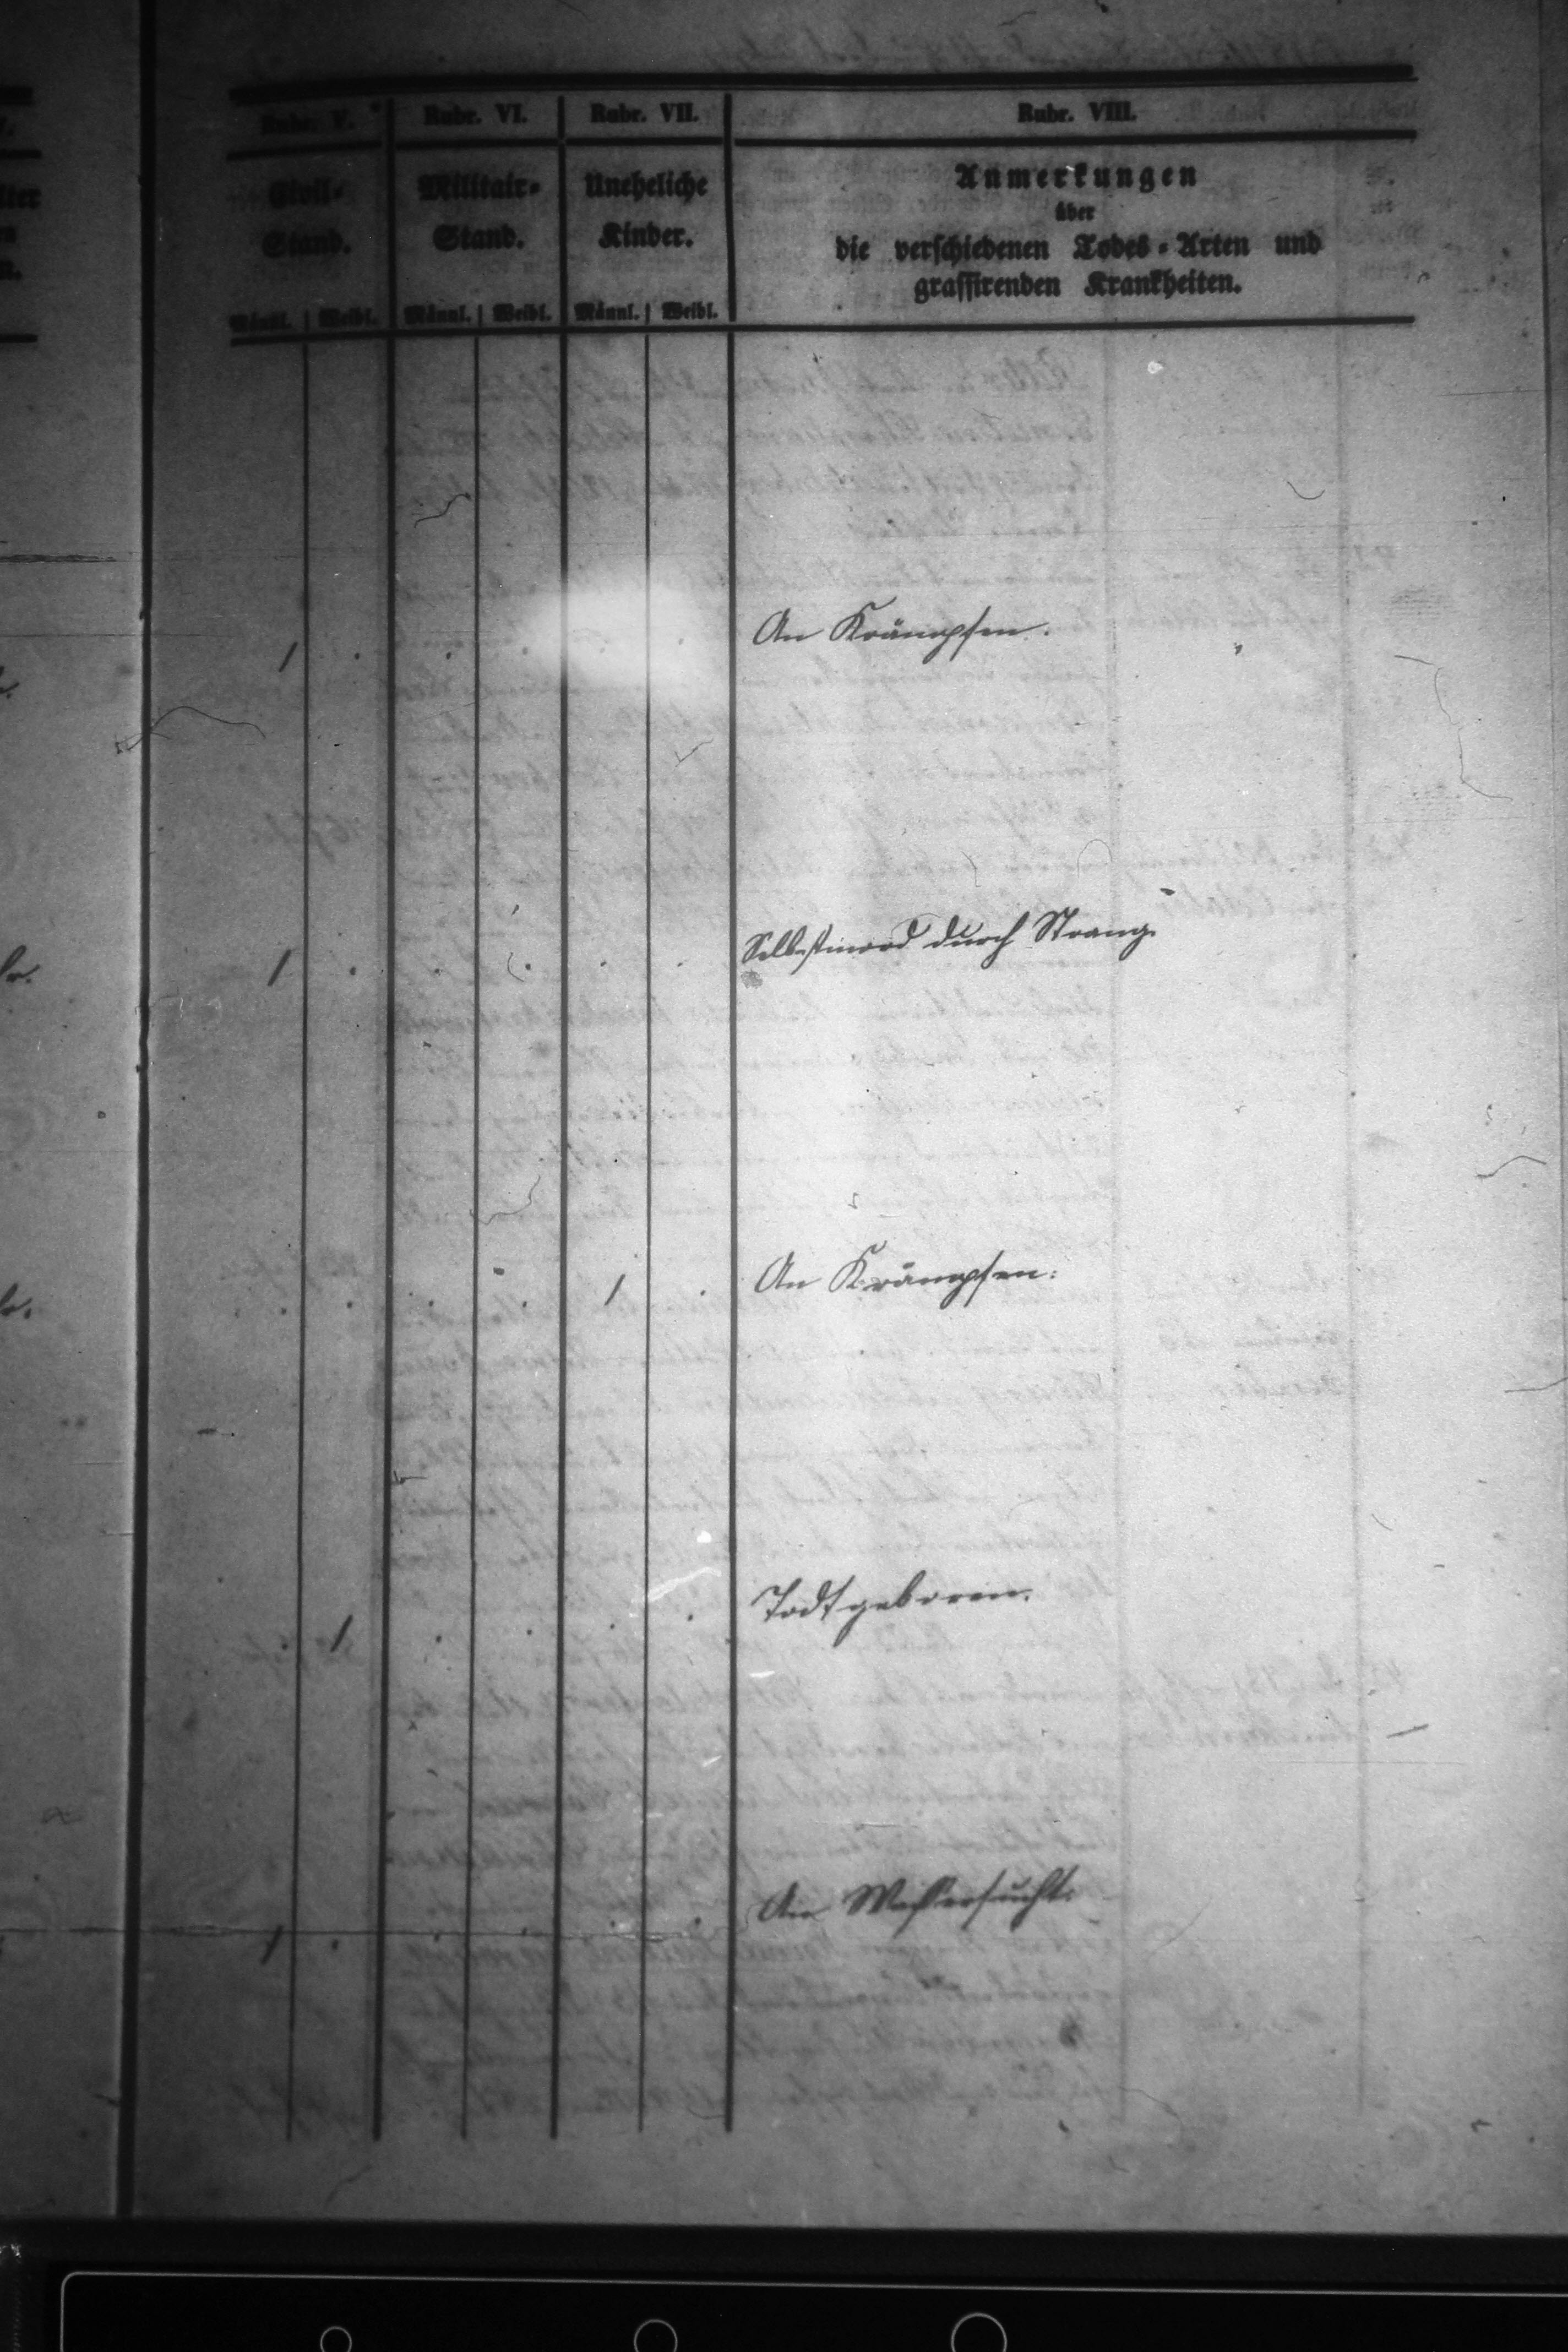 Rubr. V. Rubr. VI. Rubr. VII. Rubr. VIII.
Civil- Militair- Uneheliche Anmerkungen
über
Stand. Stand. Kinder. die verschiedenen Todes-Arten und
grassirenden Krankheiten.
Männl. Weibl. Männl. Weibl. Männl. Weibl.
1 . . . . An Krämpfen.
1 . . . . Selbstmord durch Strang.
. . . . 1 . An Krämpfen.
. 1 . . . . Todtgeboren.
1 . . . An Wassersucht.